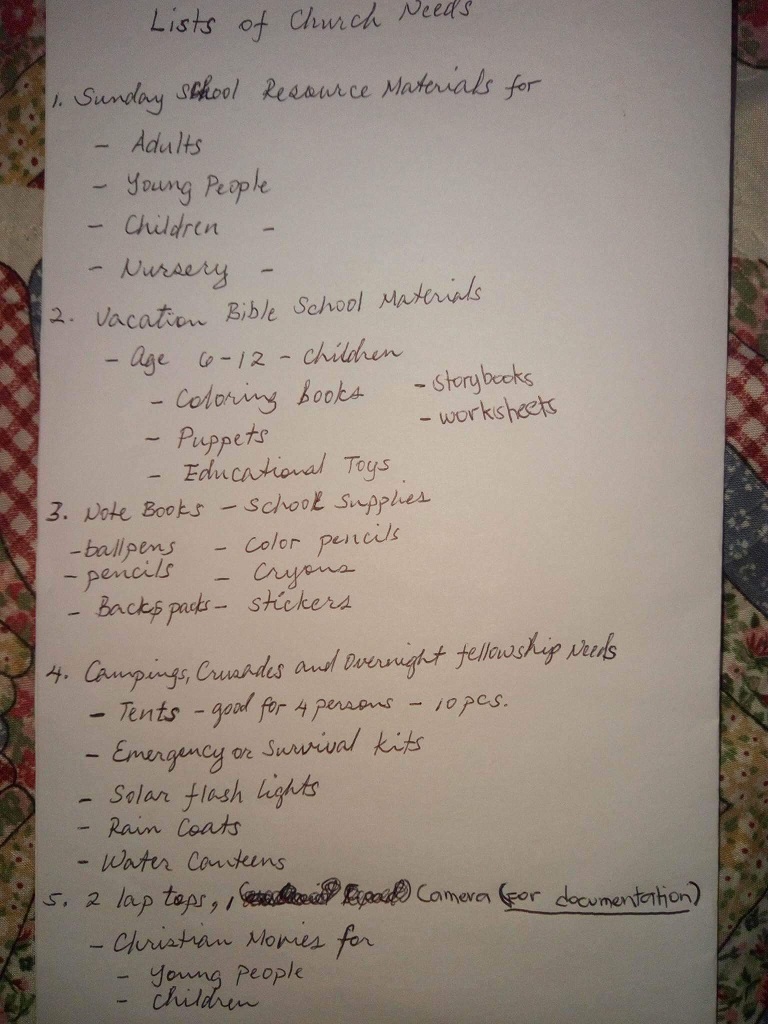 Lists of Church Needs
1. Sunday School Resource Materials for
- Adults
- Young People
- Children -
- Nursery -
2. Vacation Bible School Materials
- Age 6-12 - Children
- Coloring Books - storybooks
- Puppets - worksheets
- Educational Toys
3. Note Books - School Supplies
- ballpens - Color pencils
- pencils - Cryons
- Back packs - stickers
4. Campings, Crusades and Overnight fellowship Needs
- Tents - good for 4 persons - 10 pcs.
- Emergency or Survival kits
- Solar flash lights
- Rain Coats
- Water Canteens
5. 2 lap tops, 1 Camera (for documentation)
- Christian Movies for
- Young People
- Children